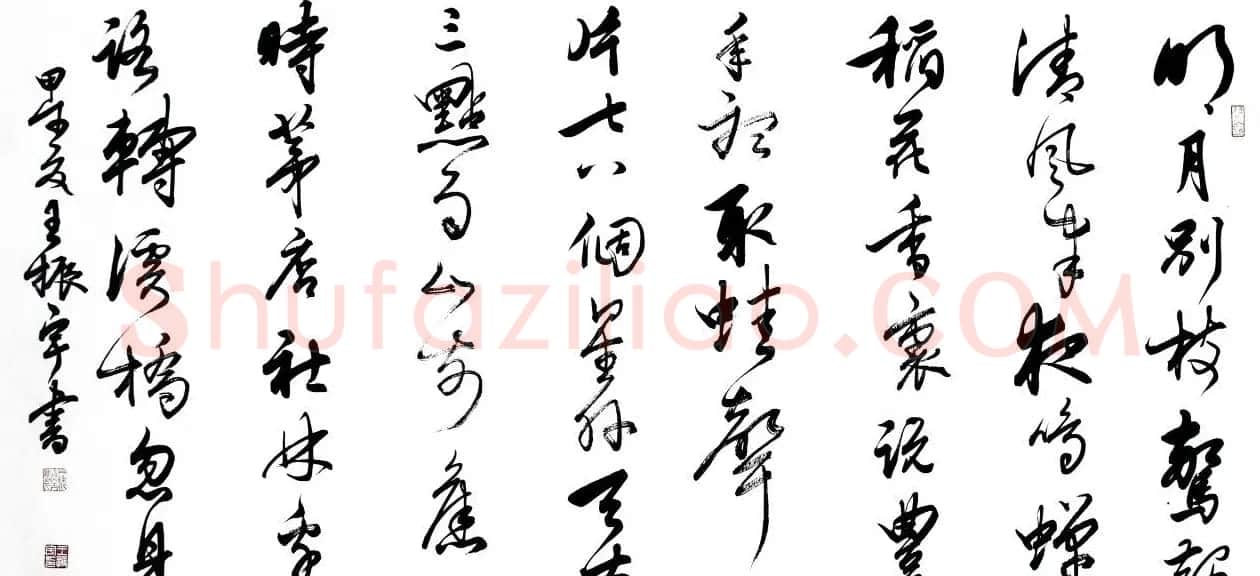 明月別枝驚
清風半夜鳴蟬
稻花香裏說豐
年聽取蛙聲
片七八個星外天
三點雨山前舊
時茅店社林邊
路轉溪橋忽見
甲午夏王振宇書
Shufaziliao.COM